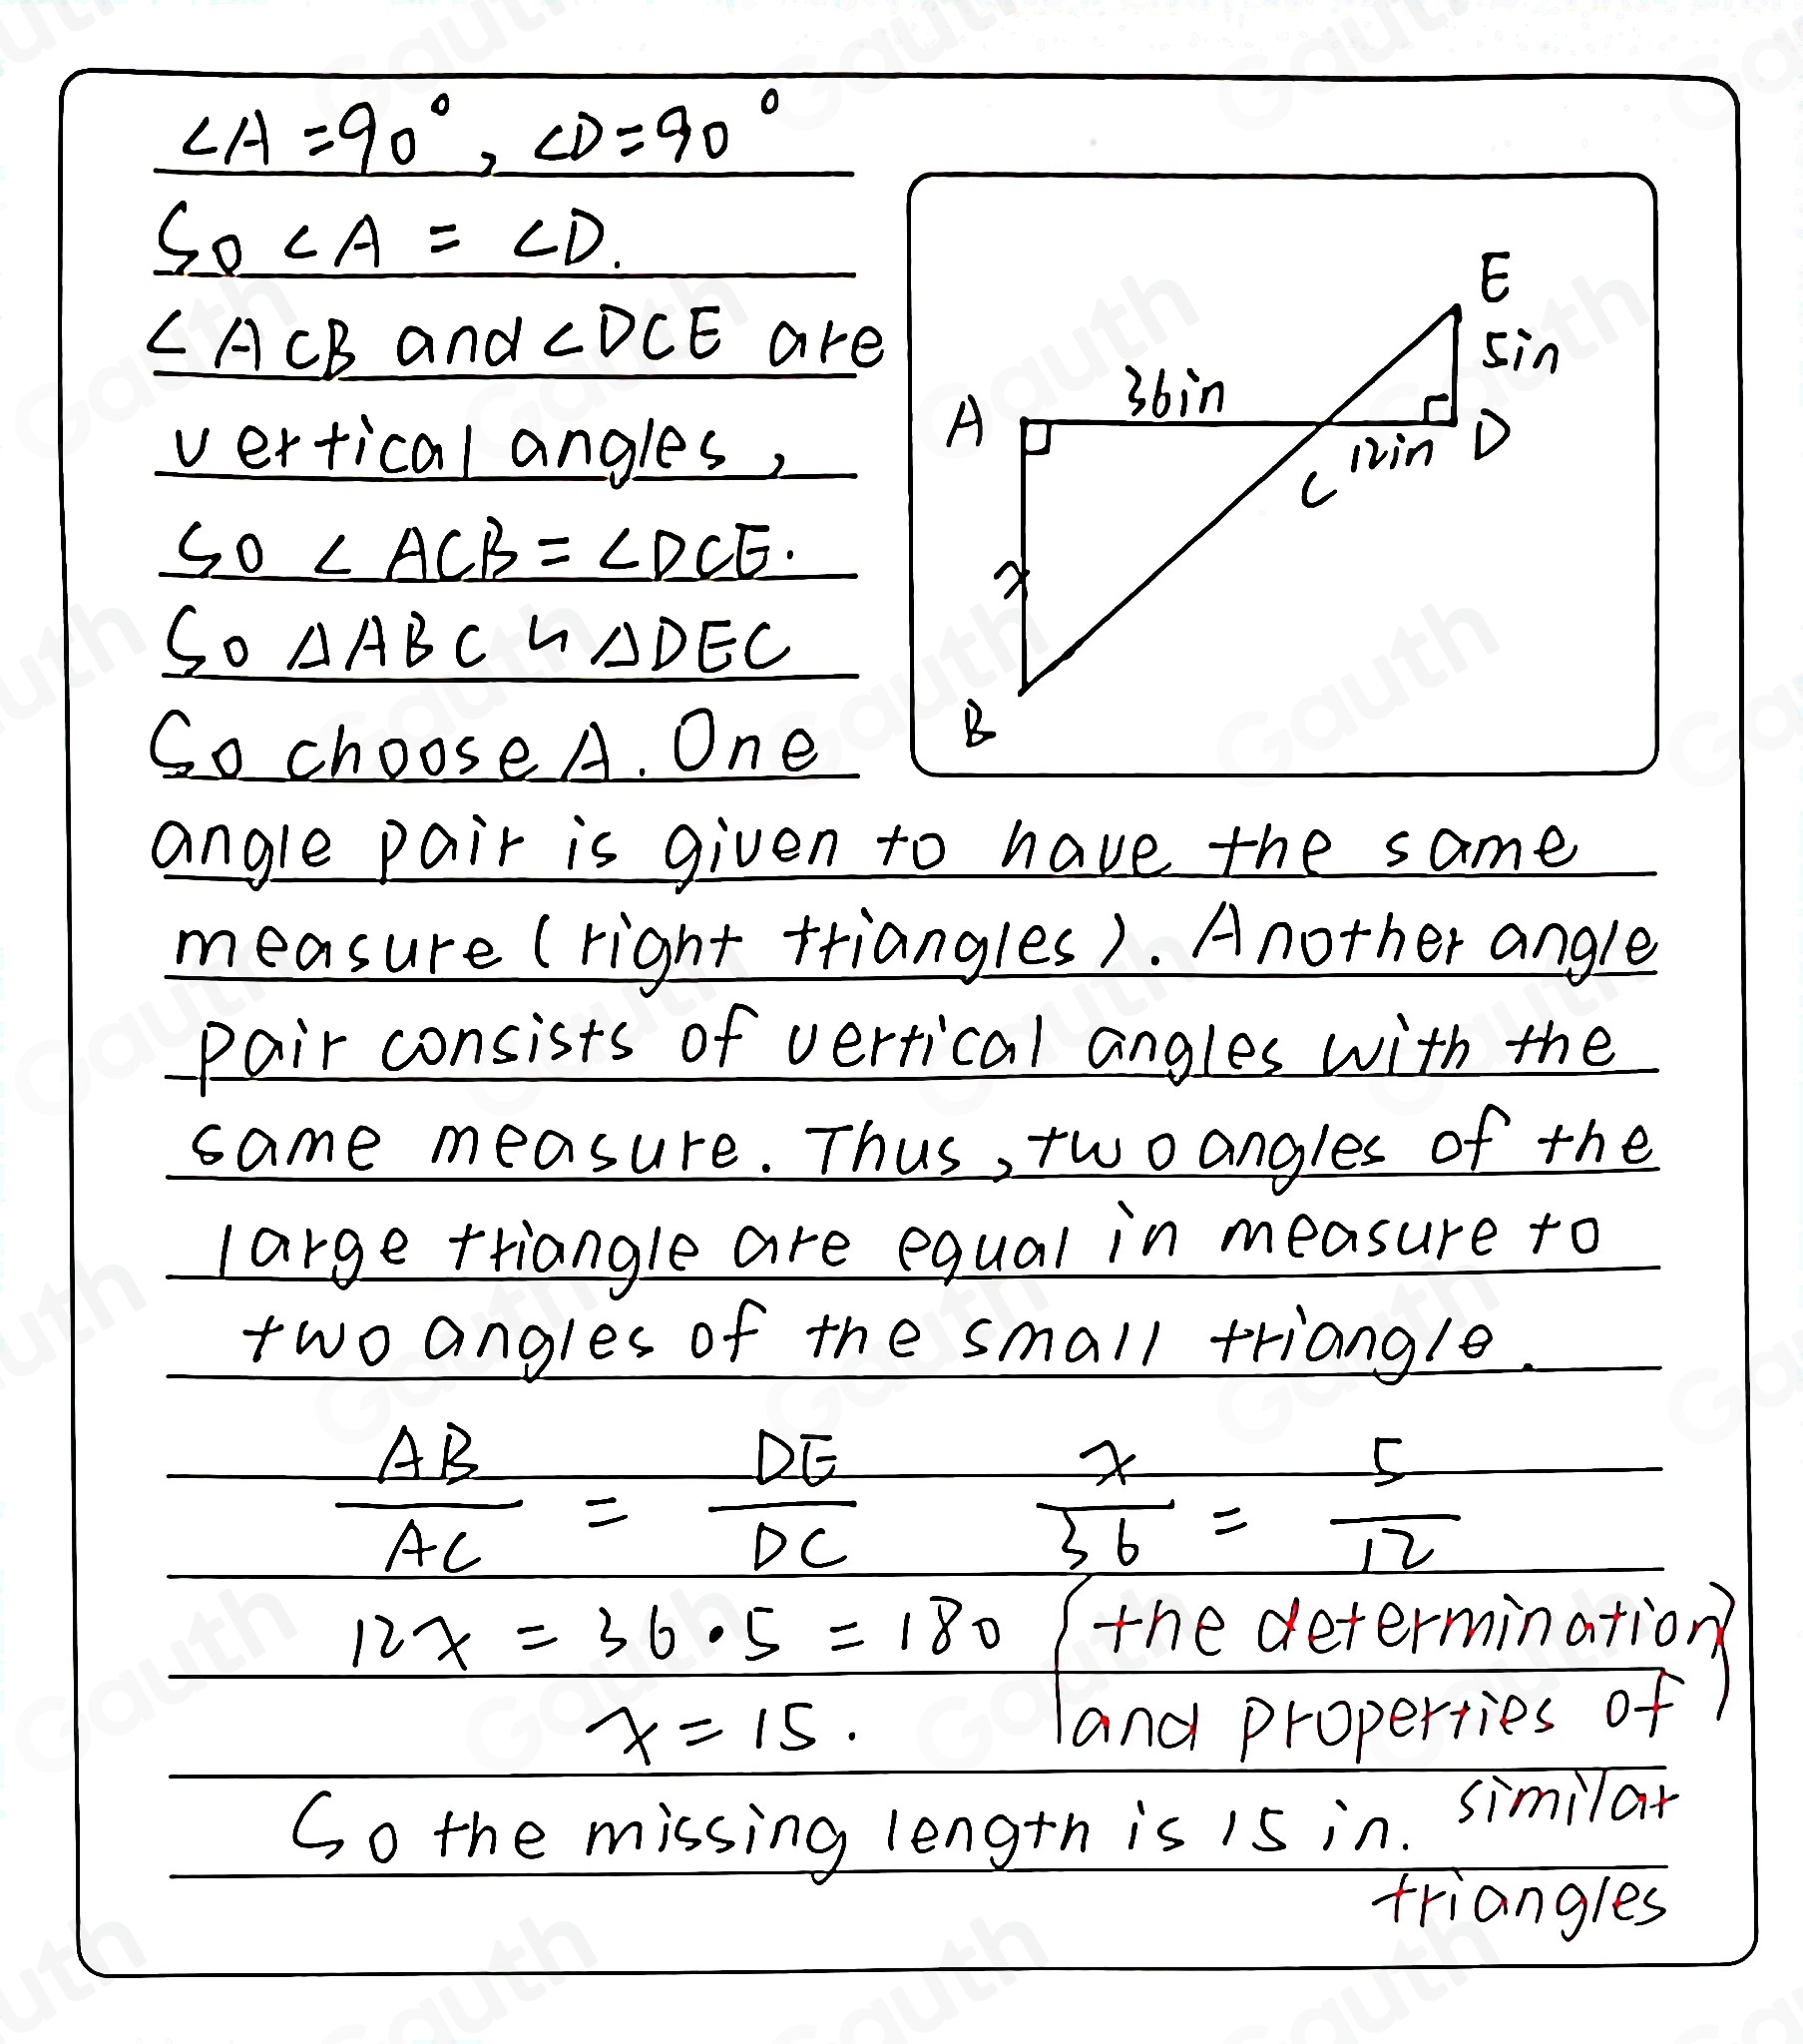 ∠A=90°, ∠D=90°
So ∠A = ∠D.
∠ACB and ∠DCE are
vertical angles,
So ∠ACB=∠DCE.
So △ABC ∽ △DEC
So choose A. One
angle pair is given to have the same
measure (right triangles). Another angle
pair consists of vertical angles with the
same measure. Thus, two angles of the
large triangle are equal in measure to
two angles of the small triangle.
AB/AC = DE/DC x/36 = 5/12
12x = 36·5 = 180
x=15.
So the missing length is 15 in.
{the determination}
and properties of
similar
triangles
E
5in
36in
A
12in
D
C
x
B
Gauth